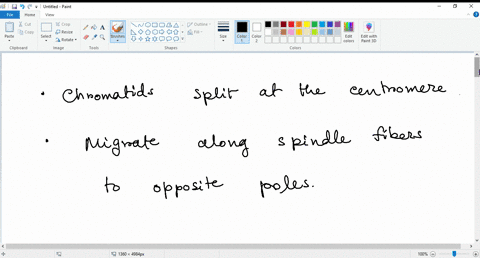 Untitled - Paint
File Home View
Paste Cut Copy Select Crop Resize Rotate Brushes Outline Fill Size Color 1 Color 2 Edit colors Edit with Paint 3D
Clipboard Image Tools Shapes Colors
• Chromatids split at the centromere
• Migrate along spindle fibers
to opposite poles.
1380 × 4984px 100%